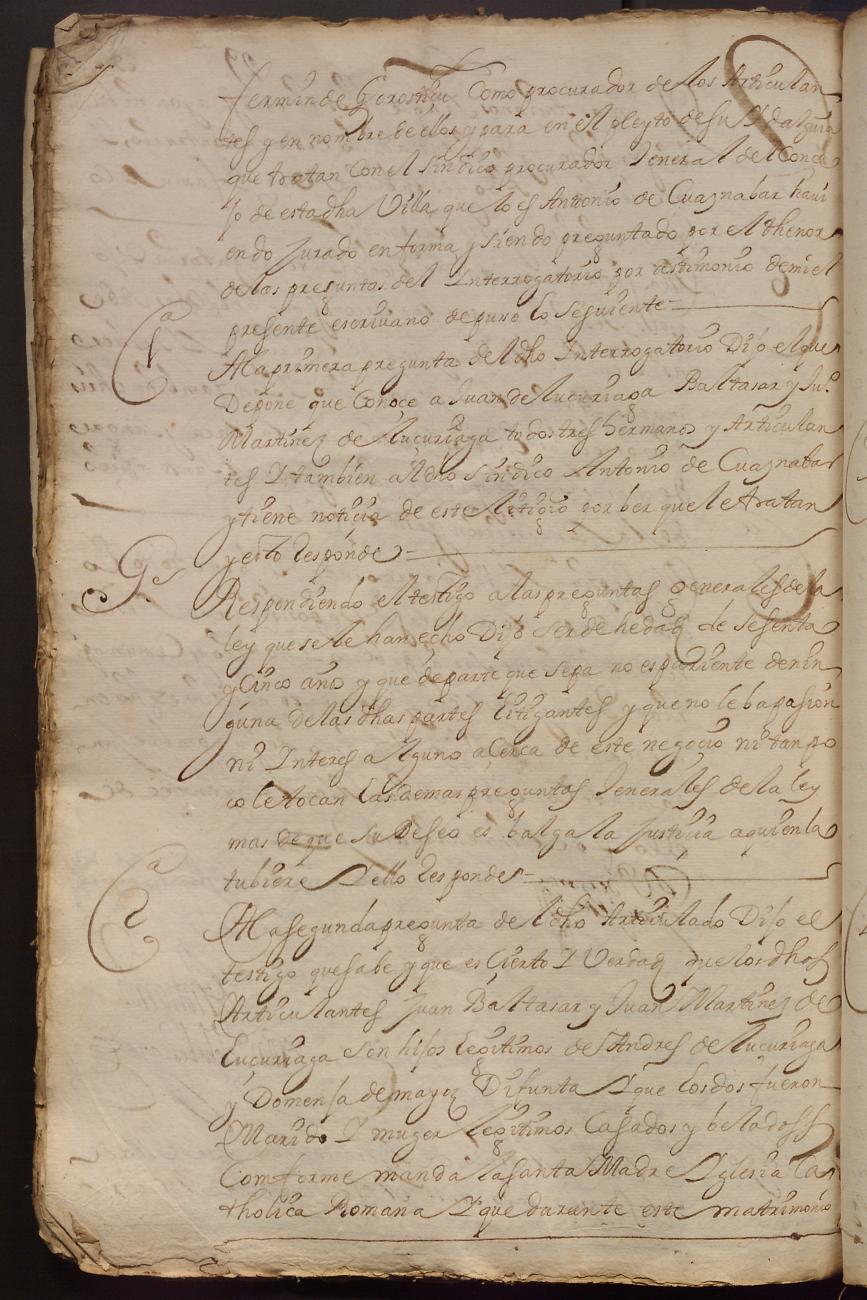 fermin de Gorostigui Como procurador de los Articulan
tes y en nombre de ellos y para en el pleyto de su Ydalguia
que tratan Con el sindico procurador Jeneral del Conce
jo de esta dha Villa que lo es Antonio de Cuaznabar havi
endo jurado en forma y siendo preguntado por el thenor
de las preguntas del Interrogatorio por testimonio de mi el
presente escrivano depuso lo seguiente
1ª
A la primera pregunta del dho Interrogatorio Dijo el que
Depone que Conoce a Juan de lucuriaga Baltasar y Juº
Martinez de lucuriaga todos tres hermanos y Articulan
tes I tambien al dho sindico Antonio de Cuaznabar
y tiene noticia de este litigio por ber que le tratan
y esto Responde
Gs
Respondiendo el testigo a las preguntas generales de la
ley que se le han echo Dijo ser de hedad de sesenta
y Cinco años y que de parte que sepa no es pariente de nin
guna de las dhas partes litigantes y que no le ba pasion
ni Interes alguno acerca de este negocio ni tanpo
co le tocan las demas preguntas Jenerales de la ley
mas de que su Deseo es balga la justicia a quien la
tubiere I ello Responde
2ª
A la segunda pregunta del dho Articulado Dijo el
testigo que sabe y que es Cierto I Verdad que los dhos
Articulantes Juan Baltasar y Juan Martinez de
lucuriaga son hijos legitimos de Andres de lucuriaga
y Domensa de mayz Difunta I que los dos fueron
Marido I muger legitimos Casados y belados
Comforme manda la santa Madre Iglesia Ca
tholica Romana I que durante este matrimonio